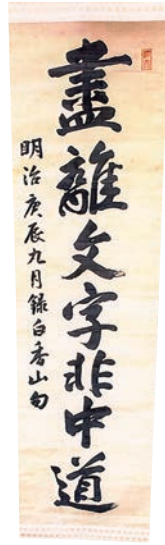 盡離文字非中道
明治庚辰九月録白香山句